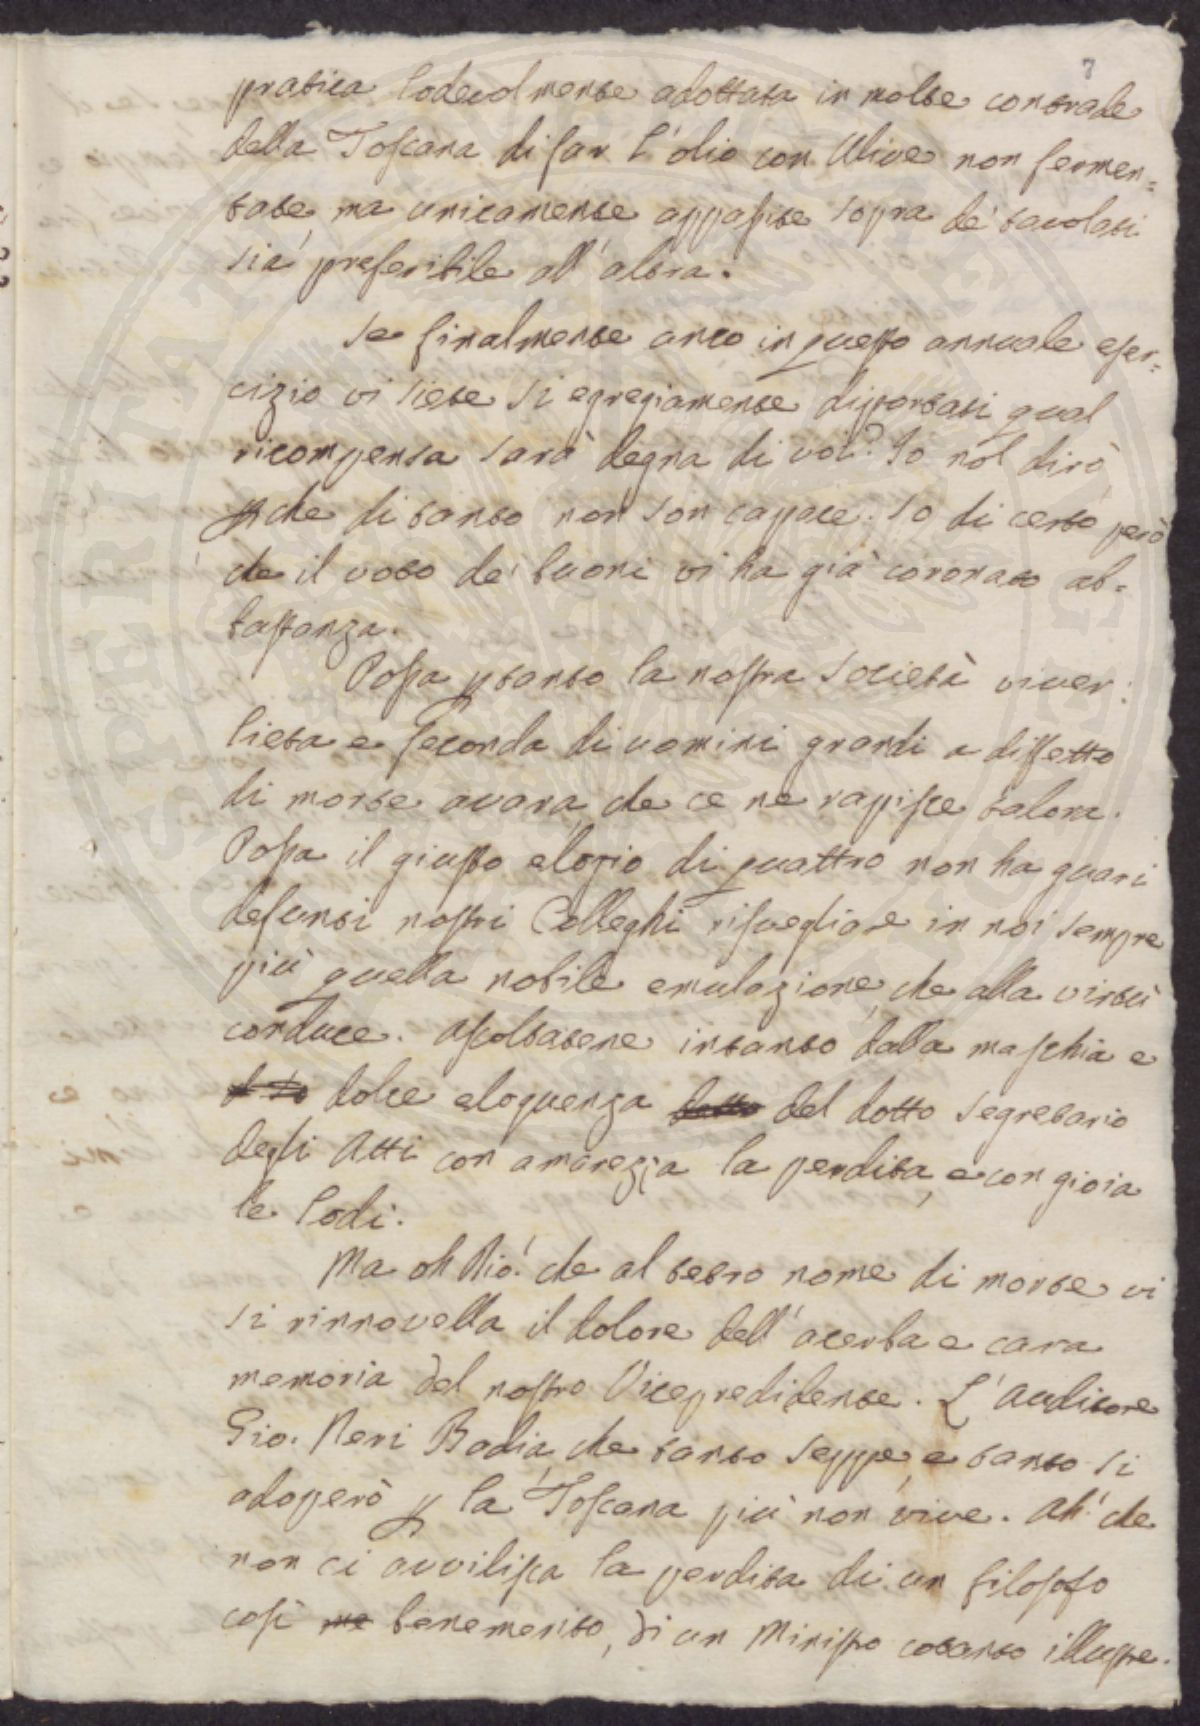 7
pratica lodevolmente adottata in molte contrade
della Toscana di far l'olio con Ulive non fermen=
tate, ma unicamente appassite sopra de' tavolati
sia preferibile all'altra.
Se finalmente anco in questo annuale eser=
cizio vi siete si egregiamente diportati qual
ricompensa sarà degna di voi? Io nol dirò
che di tanto non son capace. So di certo però
che il voto de' buoni vi ha già coronato ab=
bastanza.
Possa ptanto la nostra Società viver
lieta e feconda di uomini grandi a dispetto
di morte avara, che ce ne rapisce talora.
Possa il giusto elogio di quattro non ha guari
defunti nostri Colleghi risvegliare in noi sempre
più quella nobile emulazione, che alla virtù
conduce. Ascoltatene intanto dalla maschia e
dolce eloquenza del dotto Segretario
degli Atti con amarezza la perdita, e con gioia
le lodi.
Ma oh Dio! che al tetro nome di morte vi
si rinnovella il dolore dell'acerba e cara
memoria del nostro Vicepredidente. L'Auditore
Gio. Neri Badia, che tanto seppe, e tanto si
adoperò p la Toscana più non vive. Ah! che
non ci avvilisca la perdita di un filosofo
così benemerito, di un Ministro cotanto illustre.
ASPERITATE